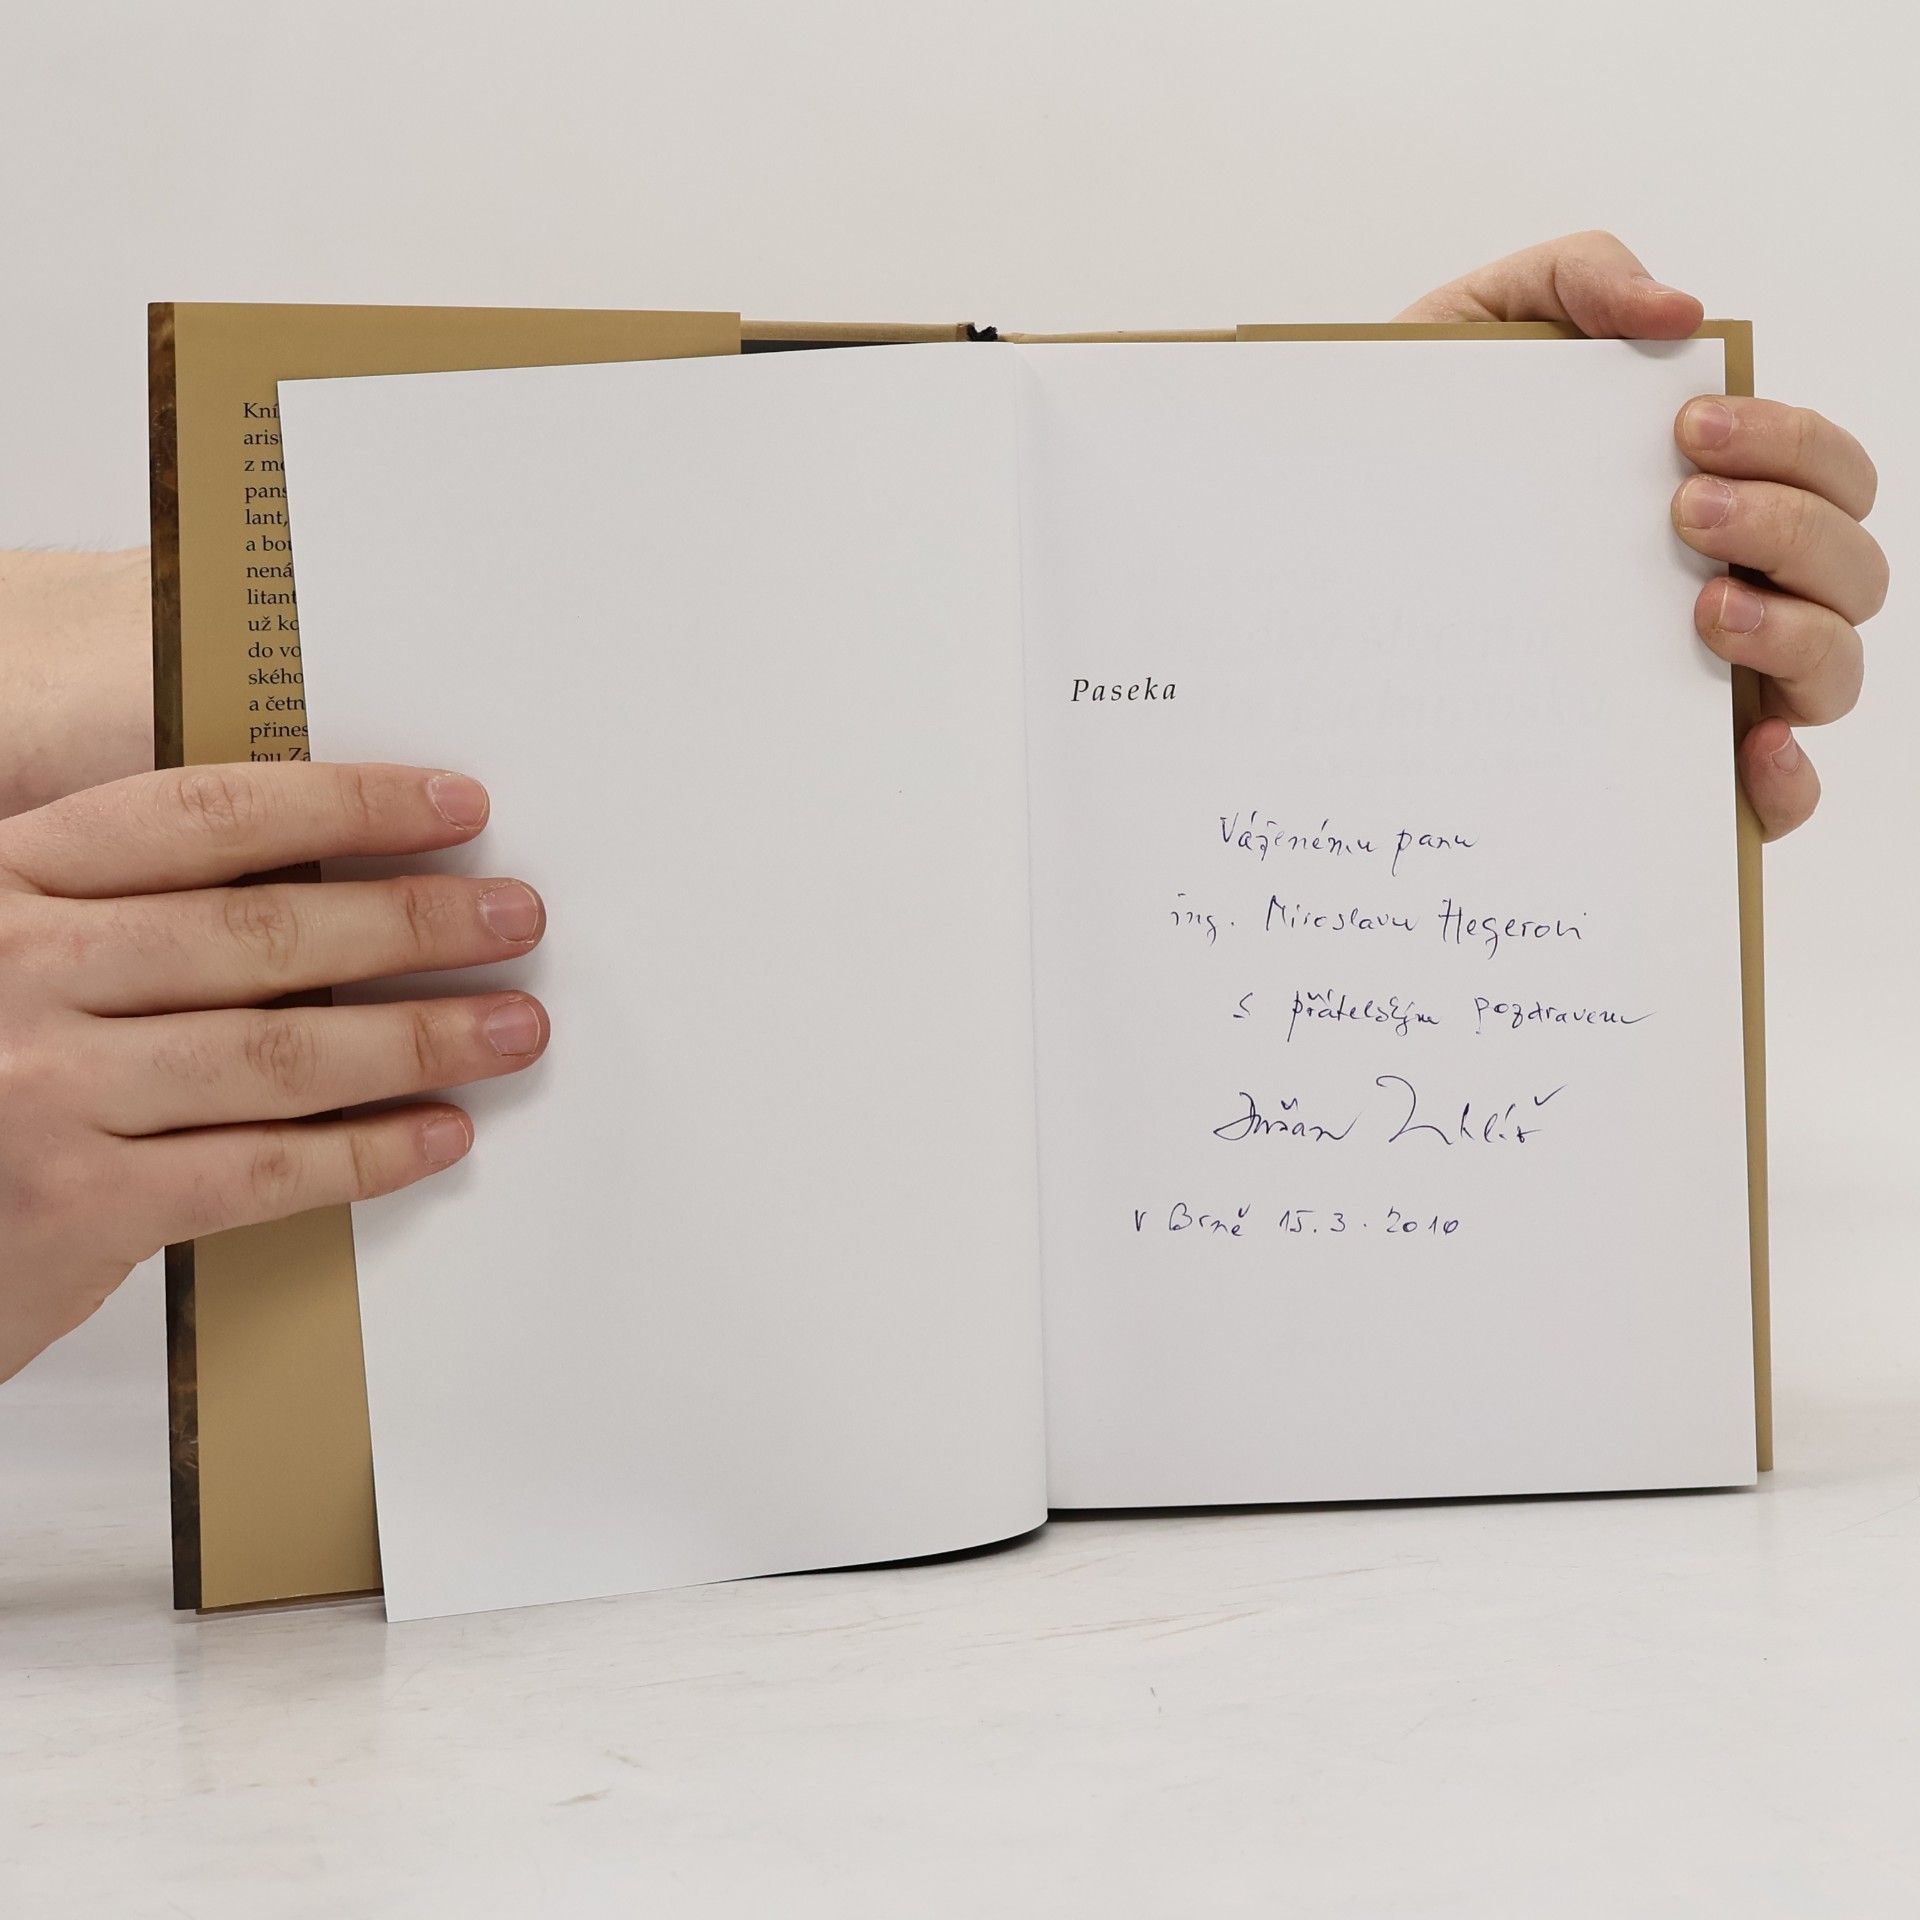 Kní
aris
z mo
pans
lant,
a bou
nená
litant
už ko
do vo
ského
a četn
přines
tou Za
Paseka
Váženému panu
ing. Miroslavu Hegerovi
s přátelským pozdravem
Dušan Uhlíř
v Brně 15.3.2010